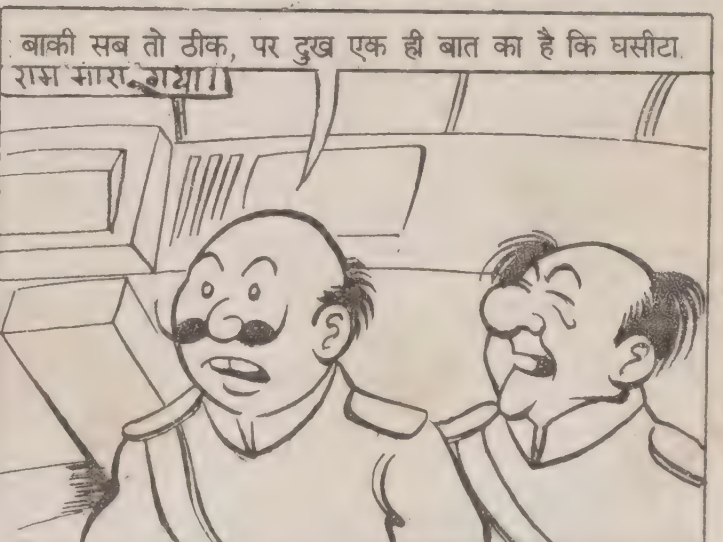 बाकी सब तो ठीक, पर दुख एक ही बात का है कि घसीटा
राम मारा गया।